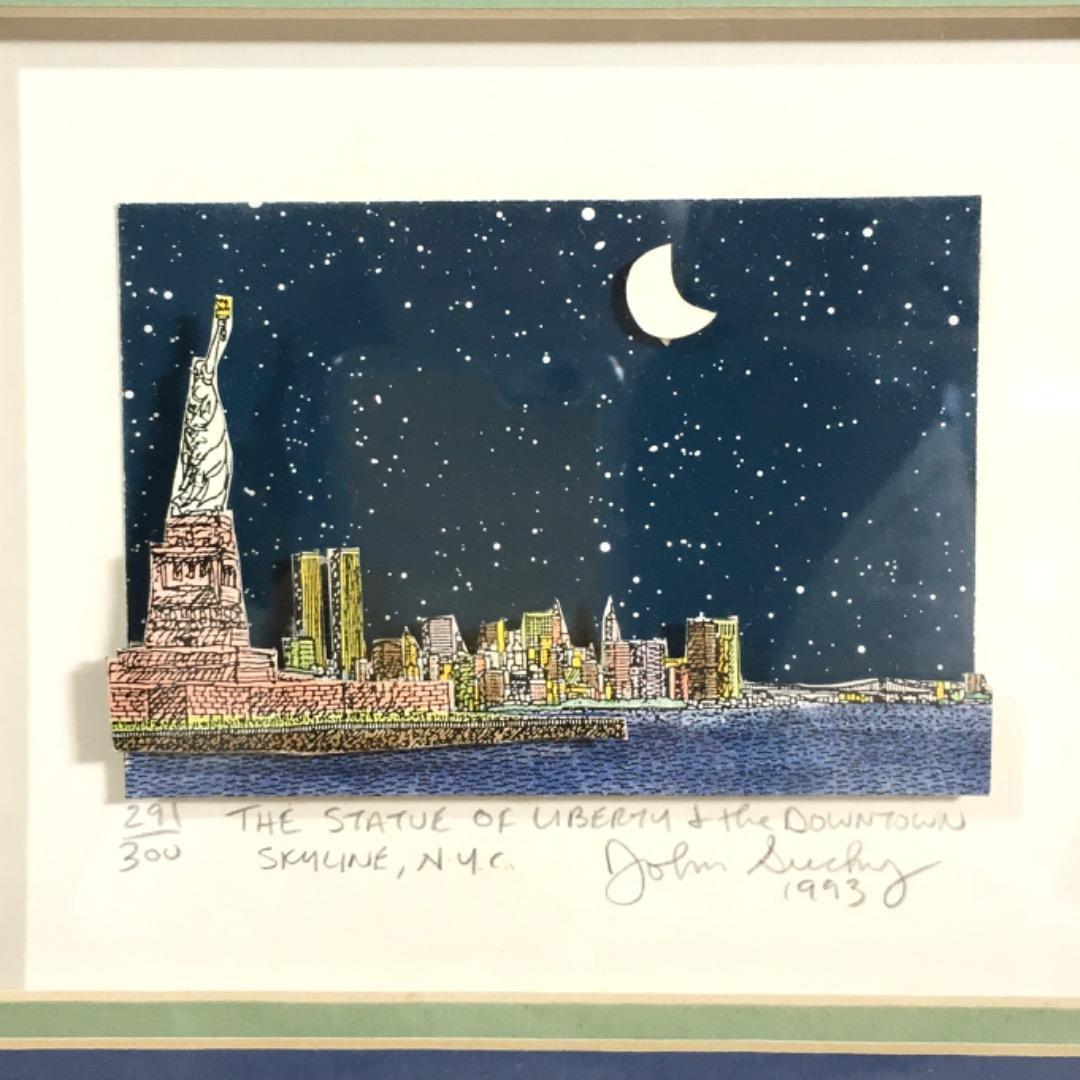 291 THE STATUE OF LIBERTY & the DOWNTOWN
300 SKYLINE, N.Y.C. John Suchy
1993